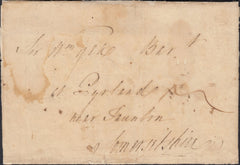 Sr Wm Yeo Bart
at Pyrland
near Taunton
Somersetshire